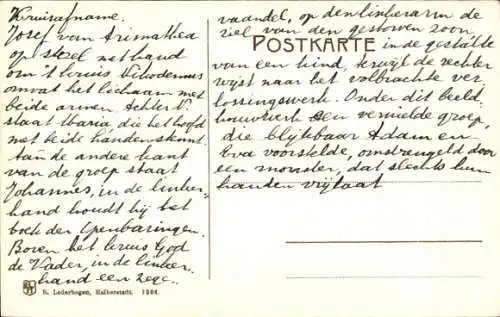 Kruisafname.
Josef van Arimathea
op stoel met hand
om 't kruis Nikodemus
omvat het lichaam met
beide armen. Achter N.
staat Maria die het hoofd
met beide handen steunt.
Aan de andere kant
van de groep staat
Johannes, in de linker-
hand houdt hij het
boek der Openbaringen.
Boven het kruis God
de Vader, in de linker
hand een zege-
vaandel, op den linkerarm de
ziel van den gestorven zoon
POSTKARTE
in de gestalte
van een kind, terwijl de rechter
wijst naar het volbrachte ver
lossingswerk. Onder dit beeld-
houwwerk een vernielde groep,
die blijkbaar Adam en
Eva voorstelde, omstrengeld door
een monster, dat slechts hun
handen vrijlaat
R. Lederbogen, Halberstadt. 1964.